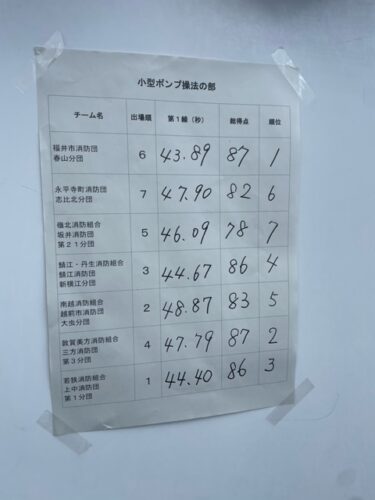 小型ポンプ操法の部
チーム名 出場順 第1線(秒) 総得点 順位
福井市消防団
春山分団 6 43.89 87 1
永平寺町消防団
志比北分団 7 47.90 82 6
嶺北消防組合
坂井消防団
第21分団 5 46.09 78 7
鯖江・丹生消防組合
鯖江消防団
新横江分団 3 44.67 86 4
南越消防組合
越前市消防団
大虫分団 2 48.87 83 5
敦賀美方消防組合
三方消防団
第3分団 4 47.79 87 2
若狭消防組合
上中消防団
第1分団 1 44.40 86 3